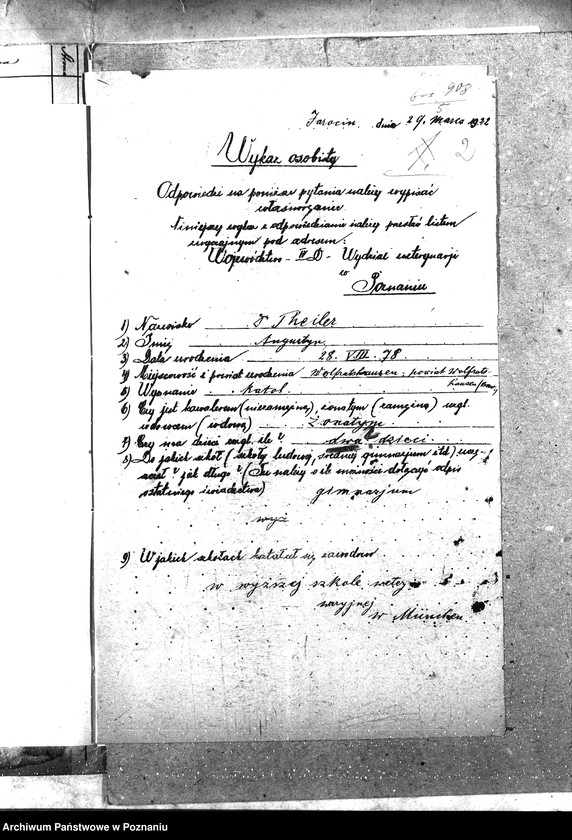 908
5
Jarocin, dnia 29. Marca 1932
2
Wykaz osobisty
Odpowiedzi na poniższe pytania należy wypisać
własnoręcznie.
Niniejszy wykaz z odpowiedziami należy przesłać listem
pod adresem:
Województwo - Wydział weterynarji
w
Poznaniu
1) Nazwisko Dr Theiler
2) Imię Augustyn
3) Data urodzenia 28. VIII. 78
4) Miejscowość i powiat urodzenia Wolfratshausen, powiat Wolfrats-
hausen
5) Wyznanie katol.
6) Czy jest kawalerem (niezamężną), żonatym (zamężną) wzgl.
wdowcem (wdową) żonatym
7) Czy ma dzieci wzgl. ile? dwa dzieci
8) Do jakich szkół (szkoły ludowej, średniej gimnazjum itd) uczę-
szczał i jak długo? (Tu należy o ile możności dołączyć odpis
ostatniego świadectwa) gimnazjum
wyż
9) W jakich szkołach kształcił się zawodowo
w wyższej szkole wetery-
naryjnej
w München
Archiwum Państwowe w Poznaniu